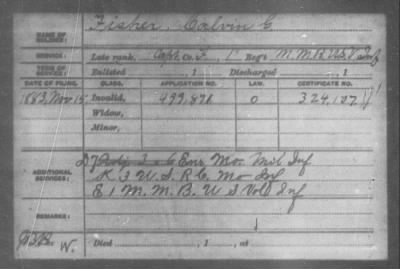 NAME OF SOLDIER: Fisher, Calvin C.
SERVICE: Late rank, Capt. Co. F, 1" Reg't M. M. B. U.S.V. Inf
TERM OF SERVICE: Enlisted , 1 Discharged , 1
DATE OF FILING. CLASS. APPLICATION NO. LAW. CERTIFICATE NO.
1883, Nov 15 Invalid, 499,878 0 324,157
Widow,
Minor,
ADDITIONAL SERVICES: Enr. Mo. Mil Inf
K. 3 U. S. R. C. Mo Inf
E 1 M. M. B. U S Vols Inf
REMARKS:
W. Died , 1 , at